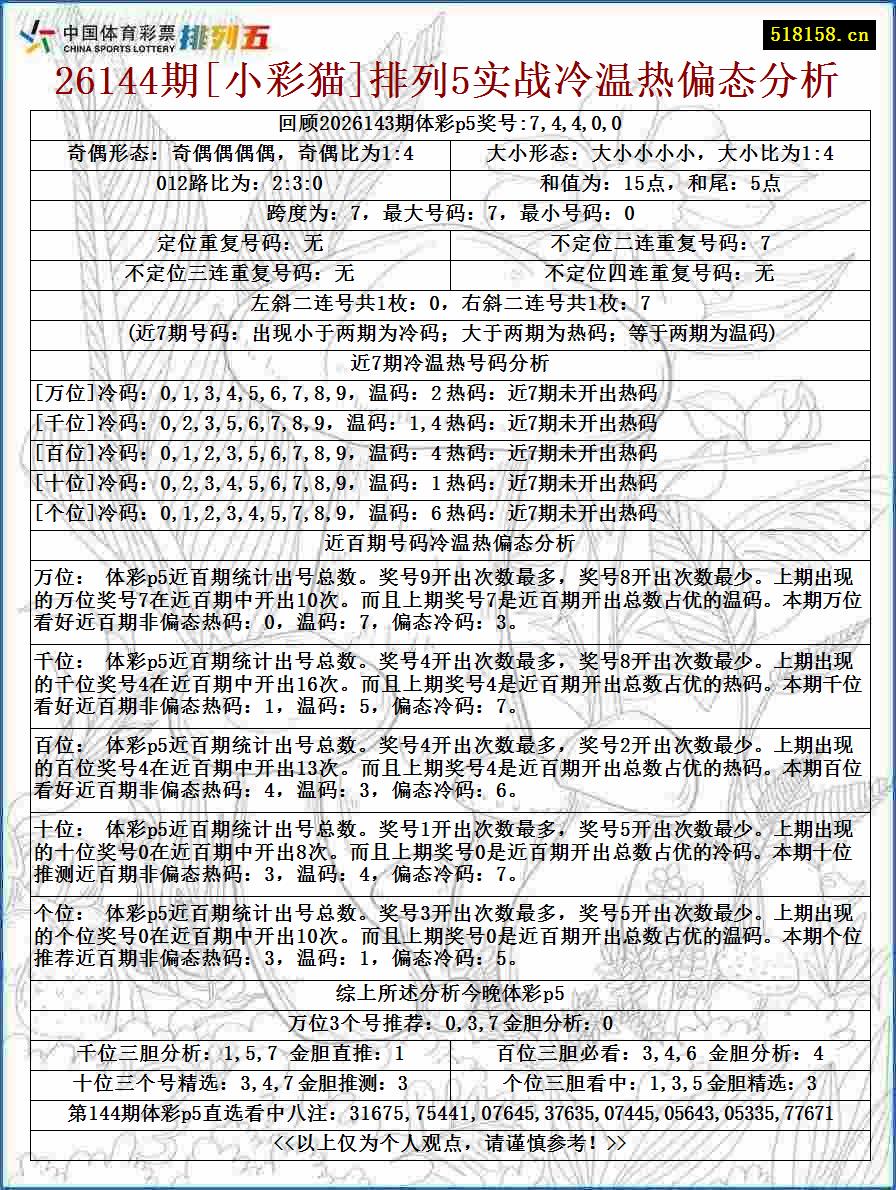 中国体育彩票 排列五
CHINA SPORTS LOTTERY
518158.cn
26144期[小彩猫]排列5实战冷温热偏态分析
回顾2026143期体彩p5奖号:7,4,4,0,0
奇偶形态：奇偶偶偶偶，奇偶比为1:4
大小形态：大小小小小，大小比为1:4
012路比为：2:3:0
和值为：15点，和尾：5点
跨度为：7，最大号码：7，最小号码：0
定位重复号码：无
不定位二连重复号码：7
不定位三连重复号码：无
不定位四连重复号码：无
左斜二连号共1枚：0，右斜二连号共1枚：7
(近7期号码：出现小于两期为冷码；大于两期为热码；等于两期为温码)
近7期冷温热号码分析
[万位]冷码：0,1,3,4,5,6,7,8,9，温码：2 热码：近7期未开出热码
[千位]冷码：0,2,3,5,6,7,8,9，温码：1,4 热码：近7期未开出热码
[百位]冷码：0,1,2,3,5,6,7,8,9，温码：4 热码：近7期未开出热码
[十位]冷码：0,2,3,4,5,6,7,8,9，温码：1 热码：近7期未开出热码
[个位]冷码：0,1,2,3,4,5,7,8,9，温码：6 热码：近7期未开出热码
近百期号码冷温热偏态分析
万位： 体彩p5近百期统计出号总数。奖号9开出次数最多，奖号8开出次数最少。上期出现
的万位奖号7在近百期中开出10次。而且上期奖号7是近百期开出总数占优的温码。本期万位
看好近百期非偏态热码：0，温码：7，偏态冷码：3。
千位： 体彩p5近百期统计出号总数。奖号4开出次数最多，奖号8开出次数最少。上期出现
的千位奖号4在近百期中开出16次。而且上期奖号4是近百期开出总数占优的热码。本期千位
看好近百期非偏态热码：1，温码：5，偏态冷码：7。
百位： 体彩p5近百期统计出号总数。奖号4开出次数最多，奖号2开出次数最少。上期出现
的百位奖号4在近百期中开出13次。而且上期奖号4是近百期开出总数占优的热码。本期百位
看好近百期非偏态热码：4，温码：3，偏态冷码：6。
十位： 体彩p5近百期统计出号总数。奖号1开出次数最多，奖号5开出次数最少。上期出现
的十位奖号0在近百期中开出8次。而且上期奖号0是近百期开出总数占优的冷码。本期十位
推测近百期非偏态热码：3，温码：4，偏态冷码：7。
个位： 体彩p5近百期统计出号总数。奖号3开出次数最多，奖号5开出次数最少。上期出现
的个位奖号0在近百期中开出10次。而且上期奖号0是近百期开出总数占优的温码。本期个位
推荐近百期非偏态热码：3，温码：1，偏态冷码：5。
综上所述分析今晚体彩p5
万位3个号推荐：0,3,7 金胆分析：0
千位三胆分析：1,5,7 金胆直推：1
百位三胆必看：3,4,6 金胆分析：4
十位三个号精选：3,4,7 金胆推测：3
个位三胆看中：1,3,5 金胆精选：3
第144期体彩p5直选看中八注：31675,75441,07645,37635,07445,05643,05335,77671
<<以上仅为个人观点，请谨慎参考！>>